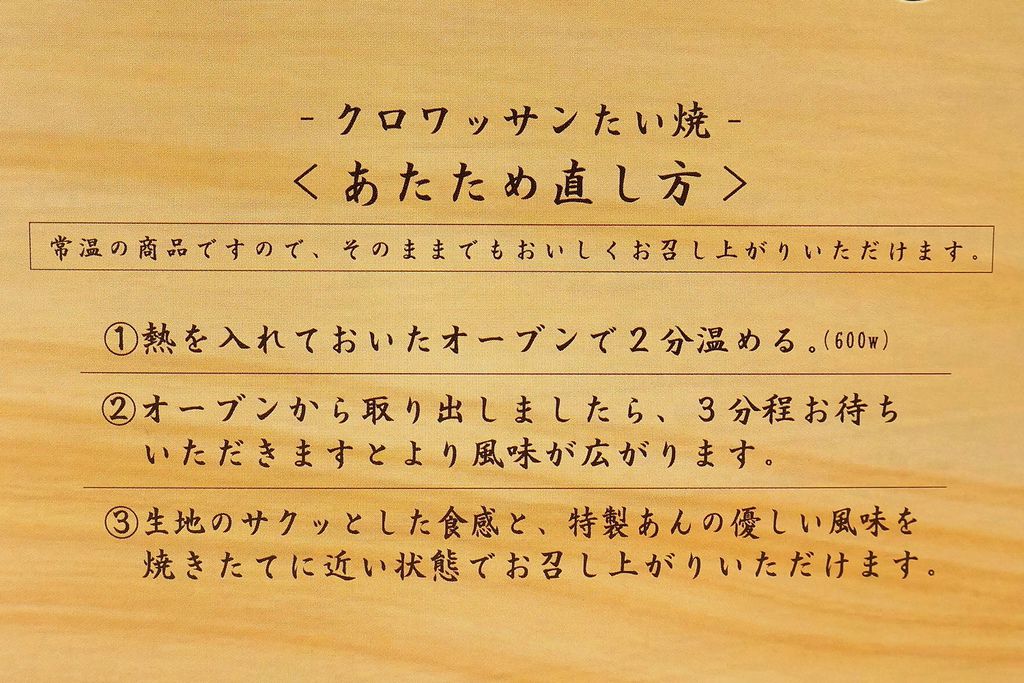 - クロワッサンたい焼 -
＜あたため直し方＞
常温の商品ですので、そのままでもおいしくお召し上がりいただけます。
①熱を入れておいたオーブンで２分温める。(600w)
②オーブンから取り出しましたら、３分程お待ち
いただきますとより風味が広がります。
③生地のサクッとした食感と、特製あんの優しい風味を
焼きたてに近い状態でお召し上がりいただけます。